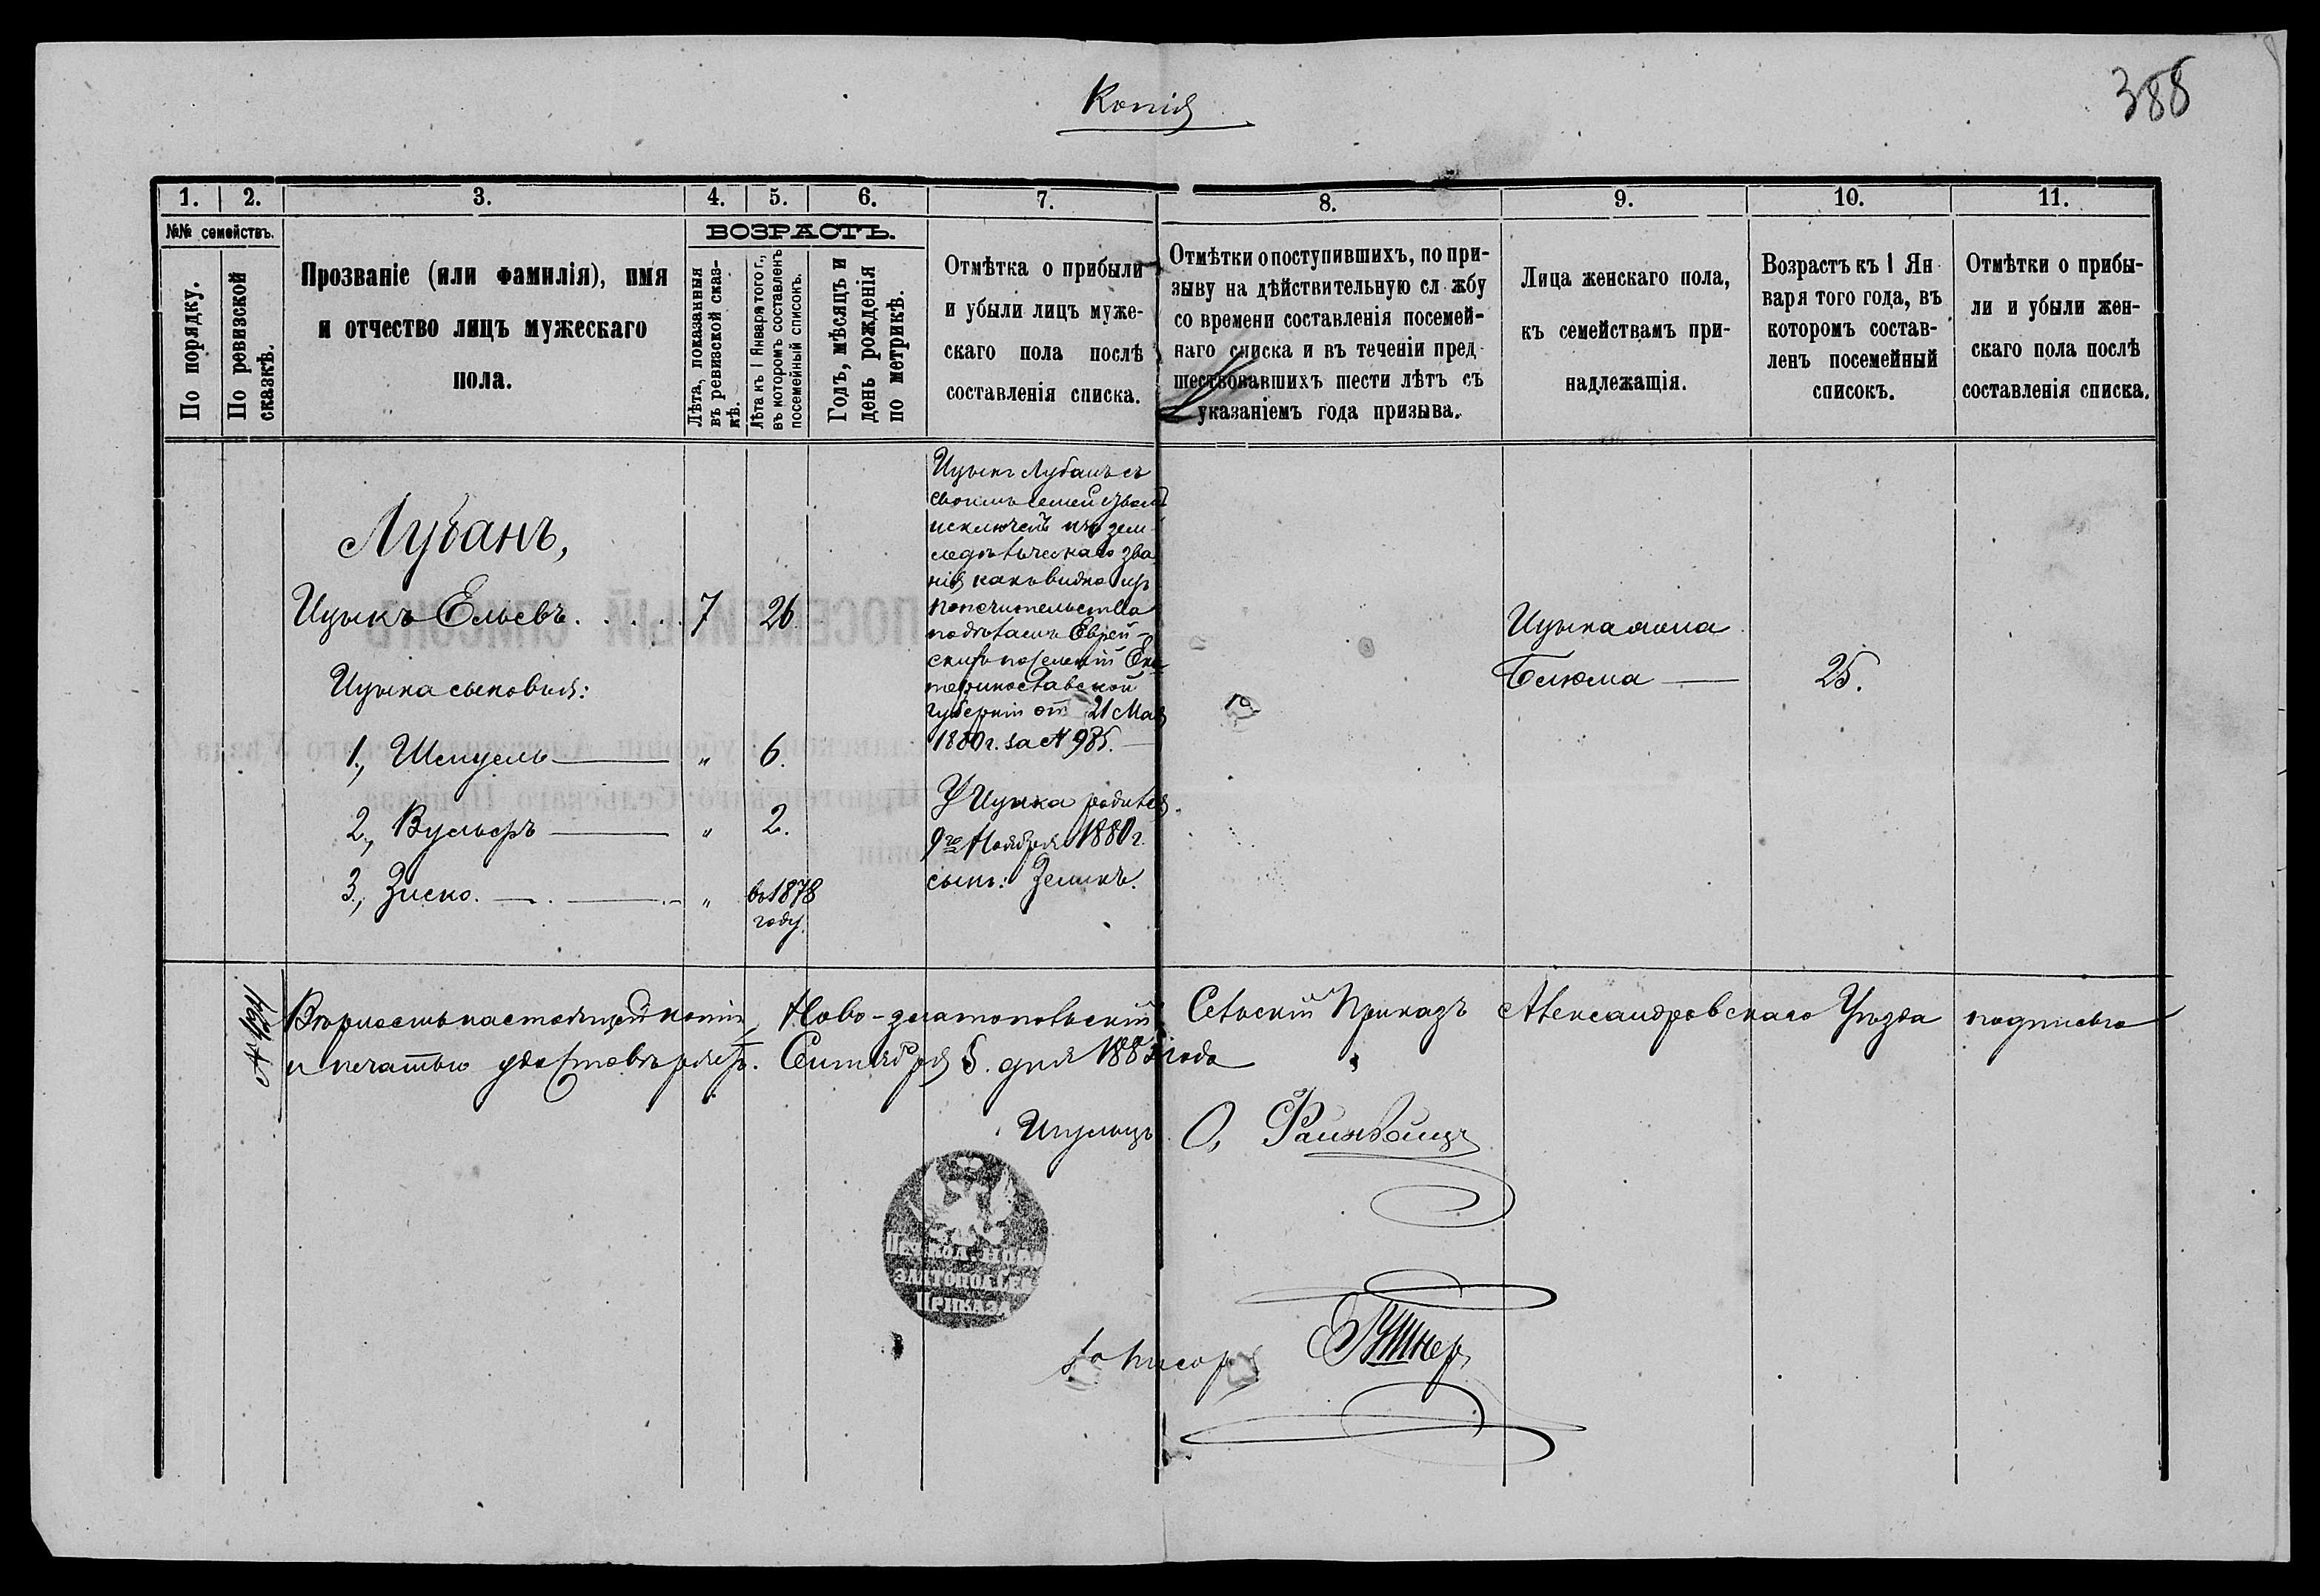 Копія
388
1. 2. 3. 4. 5. 6. 7. 8. 9. 10. 11.
№№ семействъ.
По порядку.
По ревизской сказкѣ.
Прозваніе (или фамилія), имя
и отчество лицъ мужескаго
пола.
ВОЗРАСТЪ.
Лѣта, показанныя
въ ревизской сказ-
кѣ.
Лѣта къ 1 Января того г.,
въ которомъ составленъ
посемейный списокъ.
Годъ, мѣсяцъ и
день рожденія
по метрикѣ.
Отмѣтка о прибыли
и убыли лицъ муже-
скаго пола послѣ
составленія списка.
Отмѣтки о поступившихъ, по при-
зыву на дѣйствительную сл жбу
со времени составленія посемей-
наго списка и въ теченіи пред-
шествовавшихъ шести лѣтъ съ
указаніемъ года призыва.
Лица женскаго пола,
къ семействамъ при-
надлежащія.
Возрастъ къ 1 Ян
варя того года, въ
которомъ состав-
ленъ посемейный
списокъ.
Отмѣтки о прибы-
ли и убыли жен-
скаго пола послѣ
составленія списка.
Лубанъ,
Ицыкъ Ельевъ. . . . . 7 26
Ицыка сыновья:
1., Шмуель — „ 6.
2., Вульфъ — „ 2.
3., Зиско. — „ въ 1878
году.
Ицыкъ Лубанъ съ
своимъ семействомъ
исключенъ изъ зем-
ледѣльческаго зва
нія, какъ видно изъ
попечительства
надъ Еврей-
скихъ поселеній Ека-
теринославской
губерніи отъ 21 Мая
1880 г. за № 985. —
У Ицыка родился
9го Ноября 1880 г.
сынъ: Зеликъ.
Ицыка жена
Блюма — 25.
Вѣрность настоящей копіи, Ново-златопольскій Сельскій Приказъ Александровскаго Уѣзда подписью
и печатью удостовѣряетъ. Сентября 5. дня 188 года
Шульцъ О. Файнвейцъ
ПЕЧ. КОЛ. НОВО
ЗЛАТОПОЛ. СЕЛ.
ПРИКАЗА